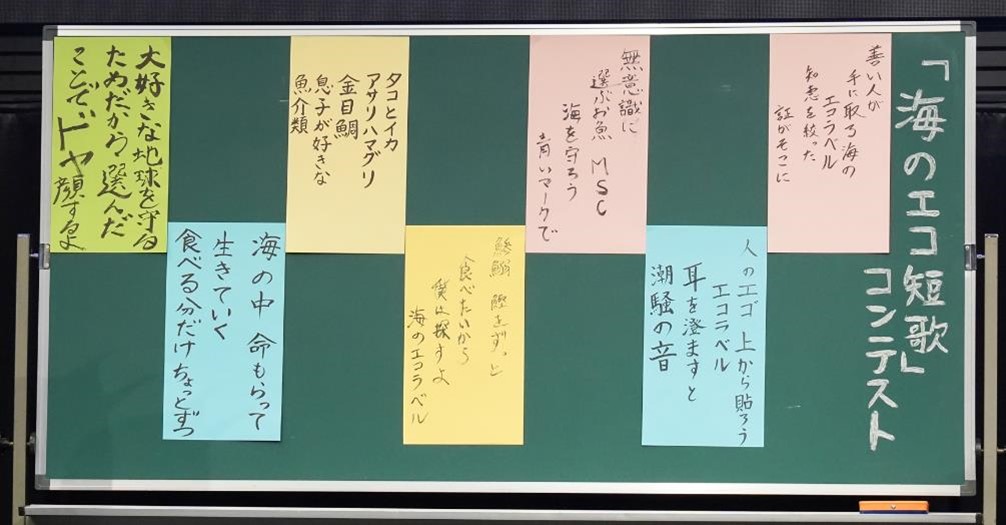 「海のエコ短歌」
コンテスト
善い人が
手に取る海の
エコラベル
知恵を絞った
証がそこに
人のエゴ 上から貼ろう
エコラベル
耳を澄ますと
潮騒の音
無意識に
選ぶお魚 MSC
海を守ろう
青いマークで
鯵鰯 ずっと
食べたいから
僕は探すよ
海のエコラベル
タコとイカ
アサリハマグリ
金目鯛
息子が好きな
魚介類
海の中 命もらって
生きていく
食べる分だけ ちょっとずつ
大好きな地球を守る
ためだから選んだ
ことで、ドヤ顔するよ